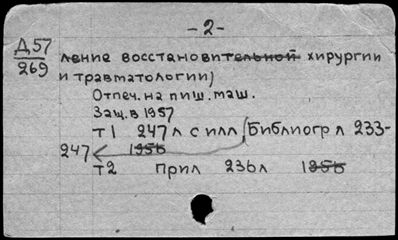 - 2 -
Д 57
269
ление восстановительной хирургии
и травматологии)
Отпеч. на пиш. маш.
Защ. в 1957
т 1 247 л с илл (Библиогр л 233-
247 1956
т 2 прил 236 л 1956